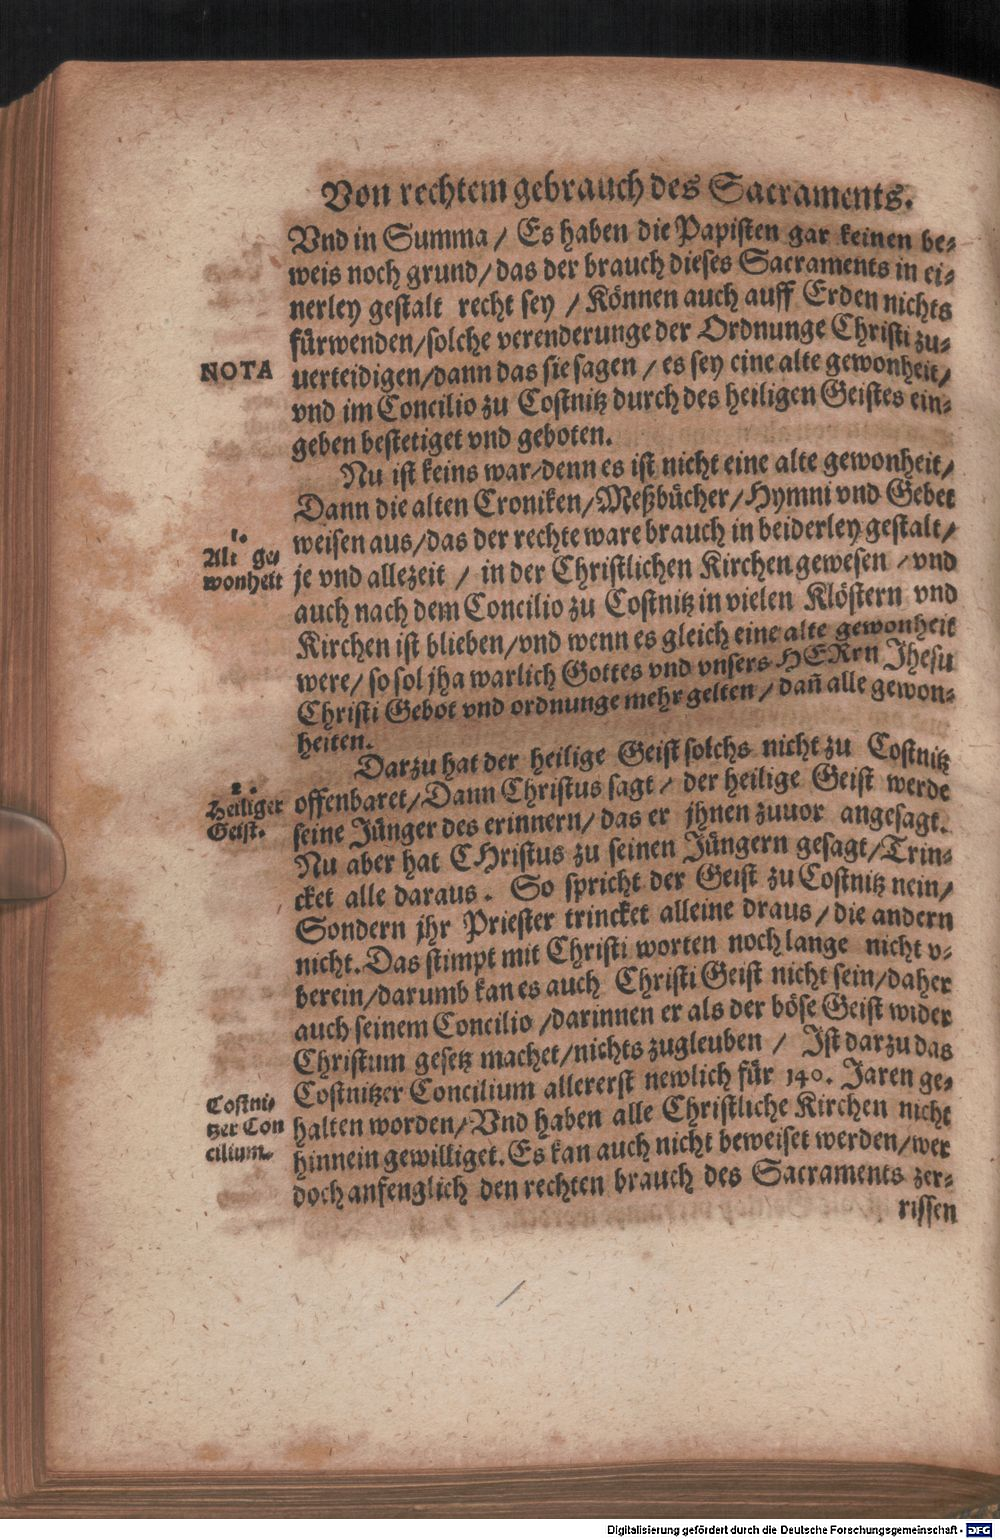 Von rechtem gebrauch des Sacraments.
Vnd in Summa / Es haben die Papisten gar keinen be-
weis noch grund / das der brauch dieses Sacraments in ei-
nerley gestalt recht sey / Können auch auff Erden nichts
fürwenden / solche verenderunge der Ordnunge Christi zu-
NOTA
uerteidigen / dann das sie sagen / es sey eine alte gewonheit /
vnd im Concilio zu Costnitz durch des heiligen Geistes ein-
geben bestetiget vnd geboten.
Nu ist keins war / denn es ist nicht eine alte gewonheit /
Dann die alten Croniken / Meßbücher / Hymni vnd Gebet
1.
Alt ge-
wonheit
weisen aus / das der rechte ware brauch in beiderley gestalt /
je vnd allezeit / in der Christlichen Kirchen gewesen / vnd
auch nach dem Concilio zu Costnitz in vielen Klöstern vnd
Kirchen ist blieben / vnd wenn es gleich eine alte gewonheit
were / so sol jha warlich Gottes vnd vnsers HERrn Jhesu
Christi Gebot vnd ordnunge mehr gelten / dañ alle gewon-
heiten.
Darzu hat der heilige Geist solchs nicht zu Costnitz
2.
Heiliger
Geist.
offenbaret / Dann Christus sagt / der heilige Geist werde
seine Jünger des erinnern / das er jhnen zuuor angesagt.
Nu aber hat CHristus zu seinen Jüngern gesagt / Trin-
cket alle daraus. So spricht der Geist zu Costnitz nein /
Sondern jhr Priester trincket alleine draus / die andern
nicht. Das stimpt mit Christi worten noch lange nicht v-
berein / darumb kan es auch Christi Geist nicht sein / daher
auch seinem Concilio / darinnen er als der böse Geist wider
Christum gesetz machet / nichts zugleuben / Ist darzu das
Costnitzer Concilium allererst newlich für 140. Jaren ge-
Costni-
tzer Con
cilium.
halten worden / Vnd haben alle Christliche Kirchen nicht
hinnein gewilliget. Es kan auch nicht beweiset werden / wer
doch anfenglich den rechten brauch des Sacraments zer-
rissen
Digitalisierung gefördert durch die Deutsche Forschungsgemeinschaft - DFG